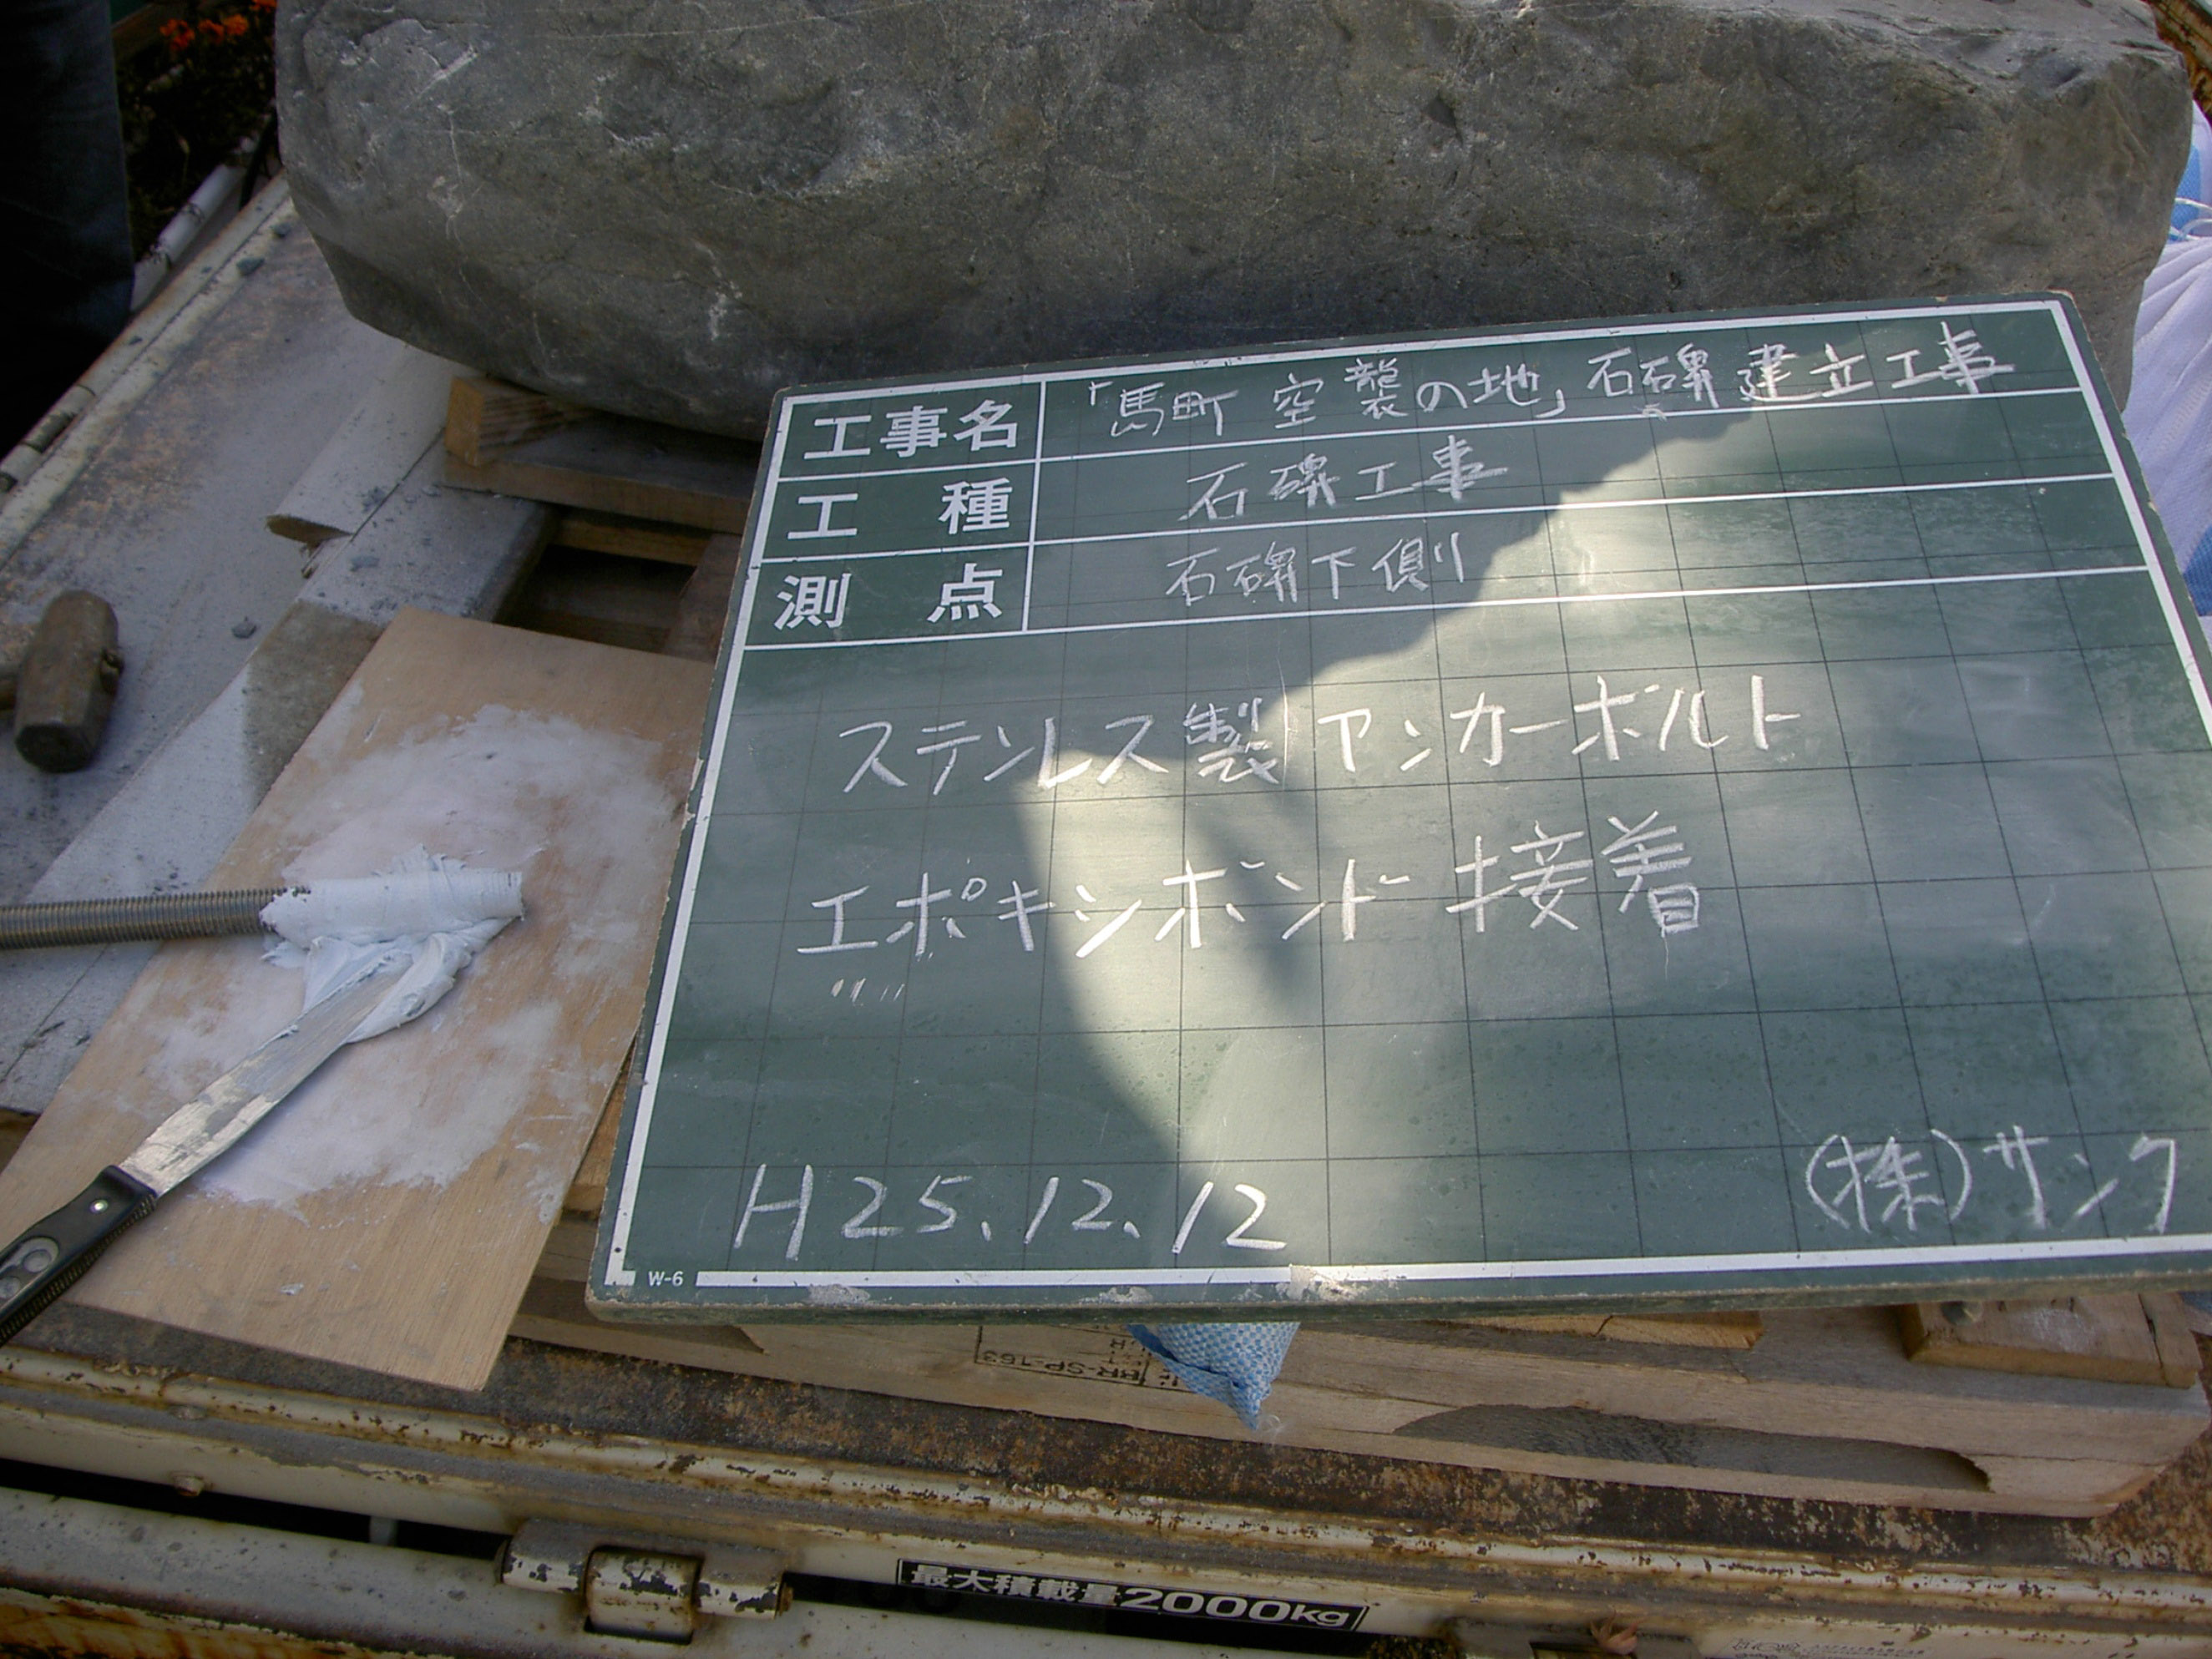 工事名 「馬町空襲の地」石碑建立工事
工種 石碑工事
測点 石碑下側
ステンレス製アンカーボルト
エポキシボンド接着
H25.12.12
(株)サンク
W-6
BR-SP-163
最大積載量2000kg